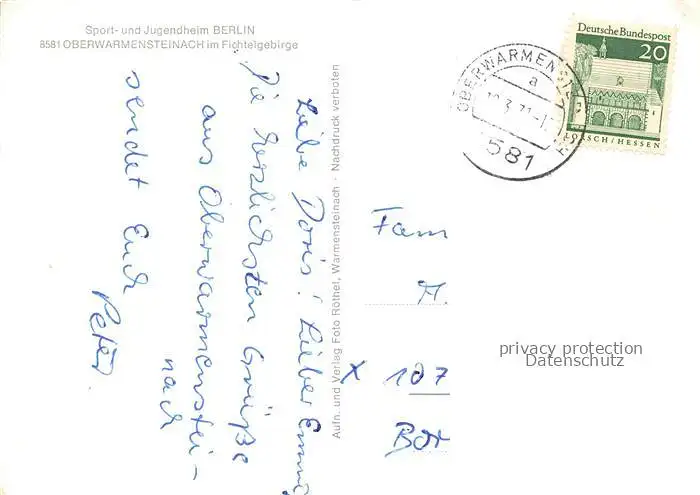 Sport- und Jugendheim BERLIN
8581 OBERWARMENSTEINACH im Fichtelgebirge
Liebe Doris! Lieber
Die herzlichsten Grüße
aus Oberwarmenstei-
nach
sendet Euch
Peter
Aufn. und Verlag Foto Röthel, Warmensteinach - Nachdruck verboten
Deutsche Bundespost
20
LORSCH/HESSEN
OBERWARMENST
a
581
Fam
M.
X 107
Bor
privacy protection
Datenschutz